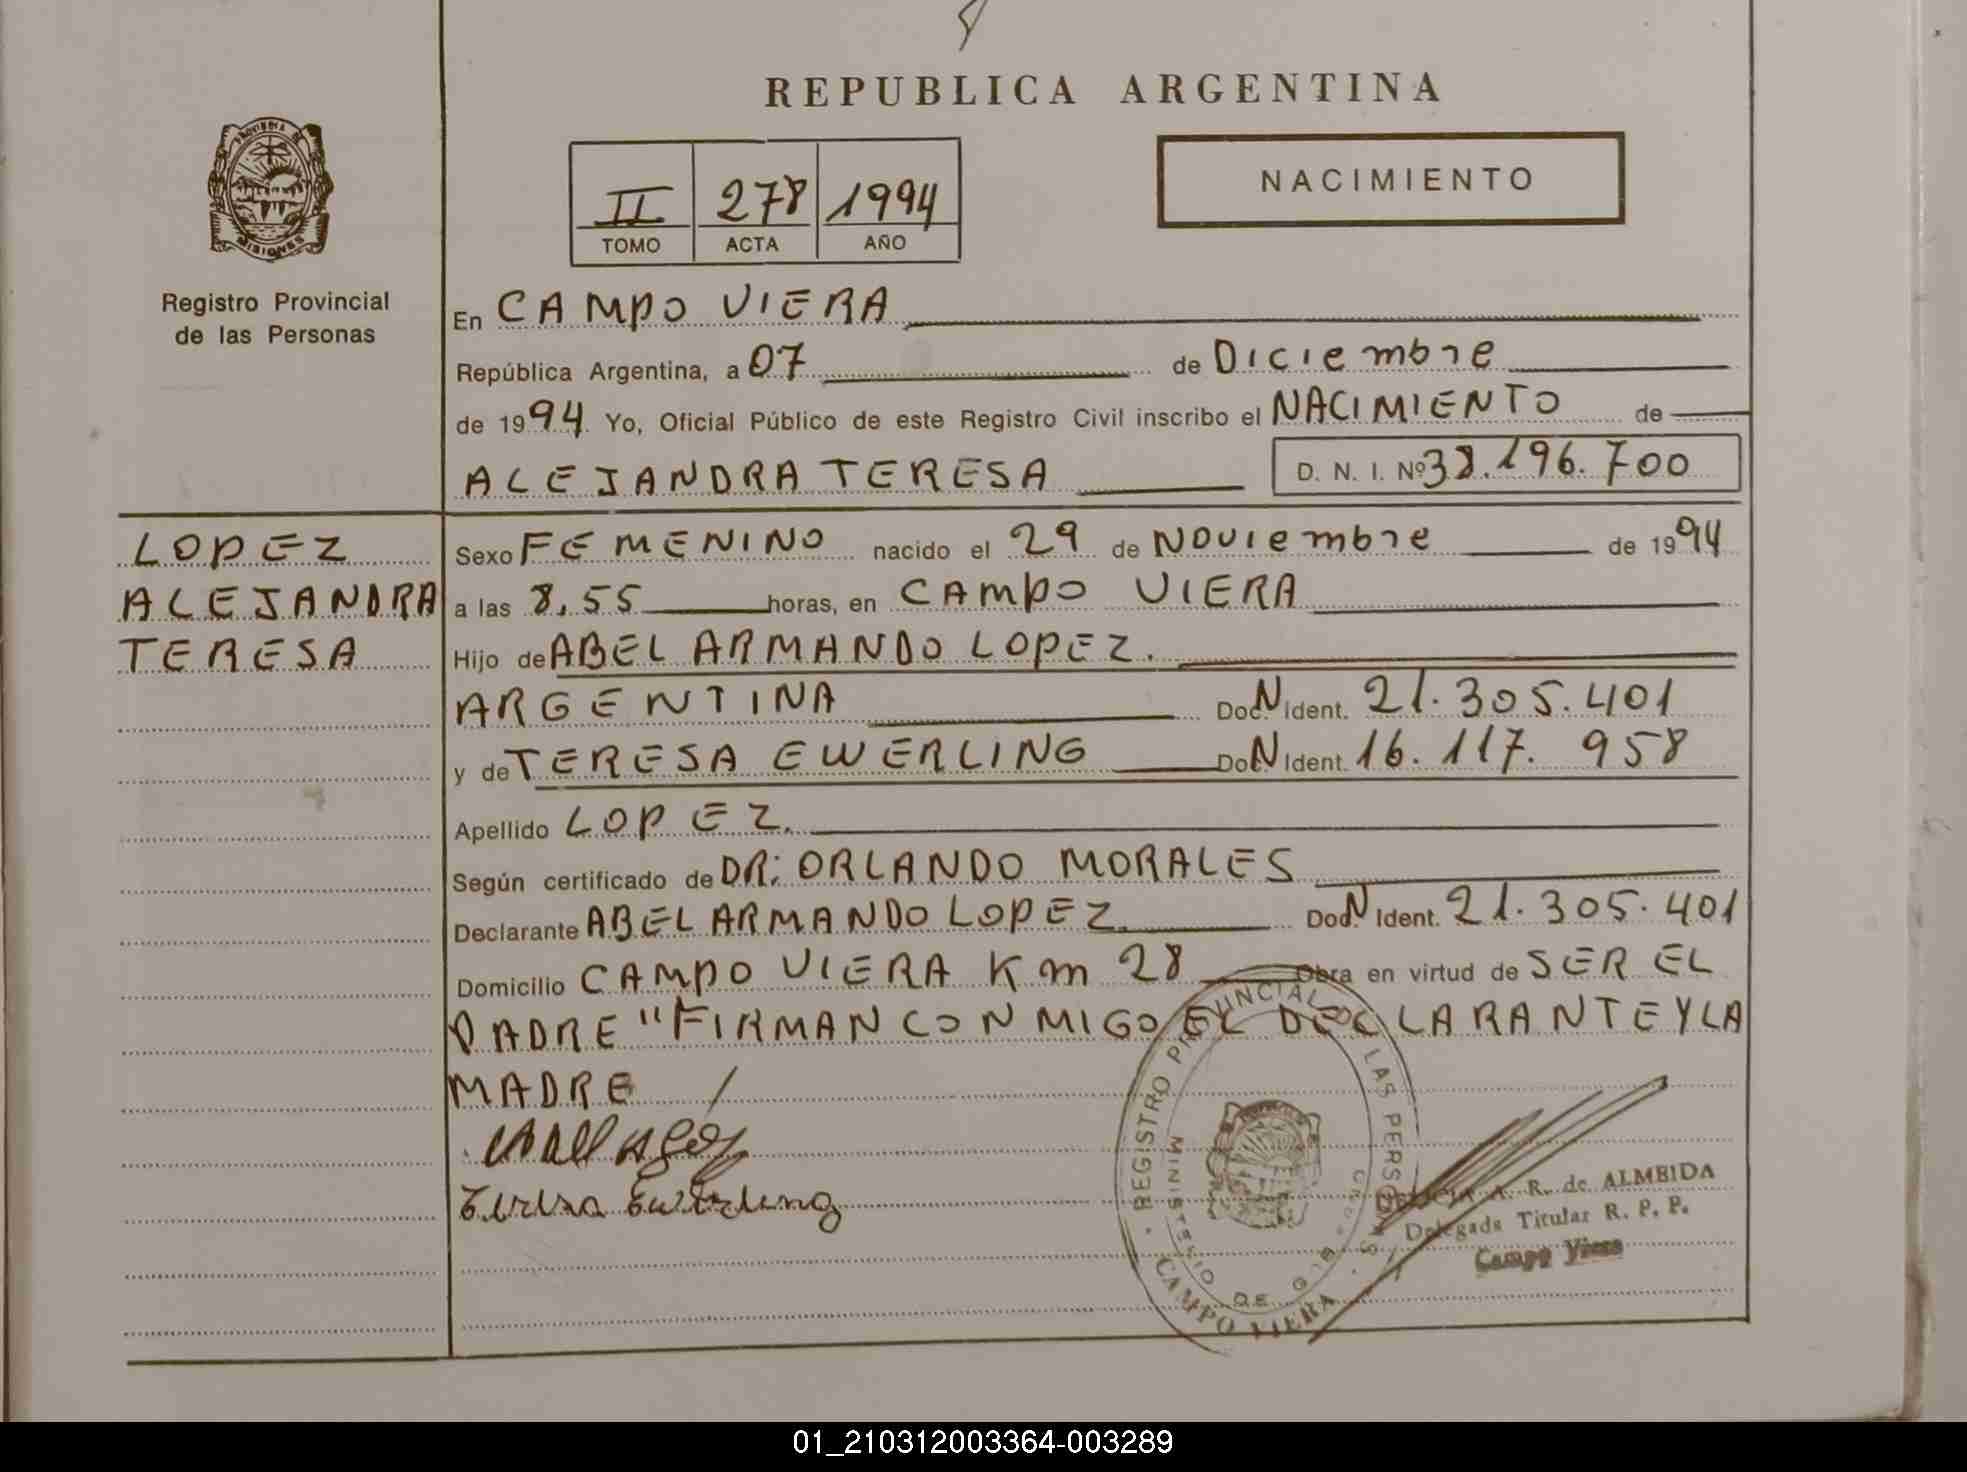 REPUBLICA ARGENTINA
PROVINCIA DE
MISIONES
Registro Provincial
de las Personas
II 278 1994
TOMO ACTA AÑO
NACIMIENTO
En CAMPO VIERA
República Argentina, a 07 de Diciembre
de 1994 Yo, Oficial Público de este Registro Civil inscribo el NACIMIENTO de
ALEJANDRA TERESA D. N. I. Nº 38.196.700
LOPEZ
ALEJANDRA
TERESA
Sexo FEMENINO nacido el 29 de Noviembre de 1994
a las 8,55 horas, en CAMPO VIERA
Hijo de ABEL ARMANDO LOPEZ.
ARGENTINA Doc. N Ident. 21.305.401
y de TERESA EWERLING Doc. N Ident. 16.117.958
Apellido LOPEZ.
Según certificado de DR: ORLANDO MORALES
Declarante ABEL ARMANDO LOPEZ. Doc. N Ident. 21.305.401
Domicilio CAMPO VIERA Km 28 Obra en virtud de SER EL
PADRE "FIRMAN CONMIGO EL DECLARANTE Y LA
MADRE /
Teresa Ewerling
REGISTRO PROVINCIAL DE LAS PERSONAS
MINISTERIO DE
CAMPO VIERA
A. R. de ALMEIDA
Delegada Titular R. P. P.
Campo Viera
01_210312003364-003289